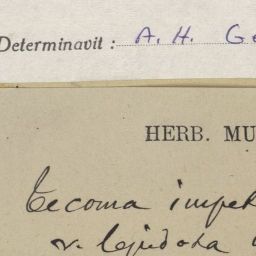 Determinavit: A. H. Ge
HERB. MU
Tecoma impet
v. lepidota